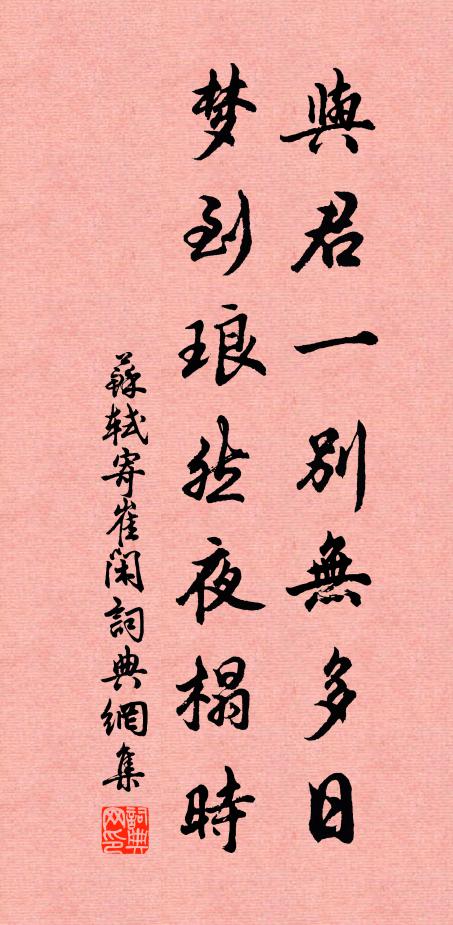 與君一別無多日
梦到琅然夜榻時
蘇軾寄崔閑詞典網集
詞典网印